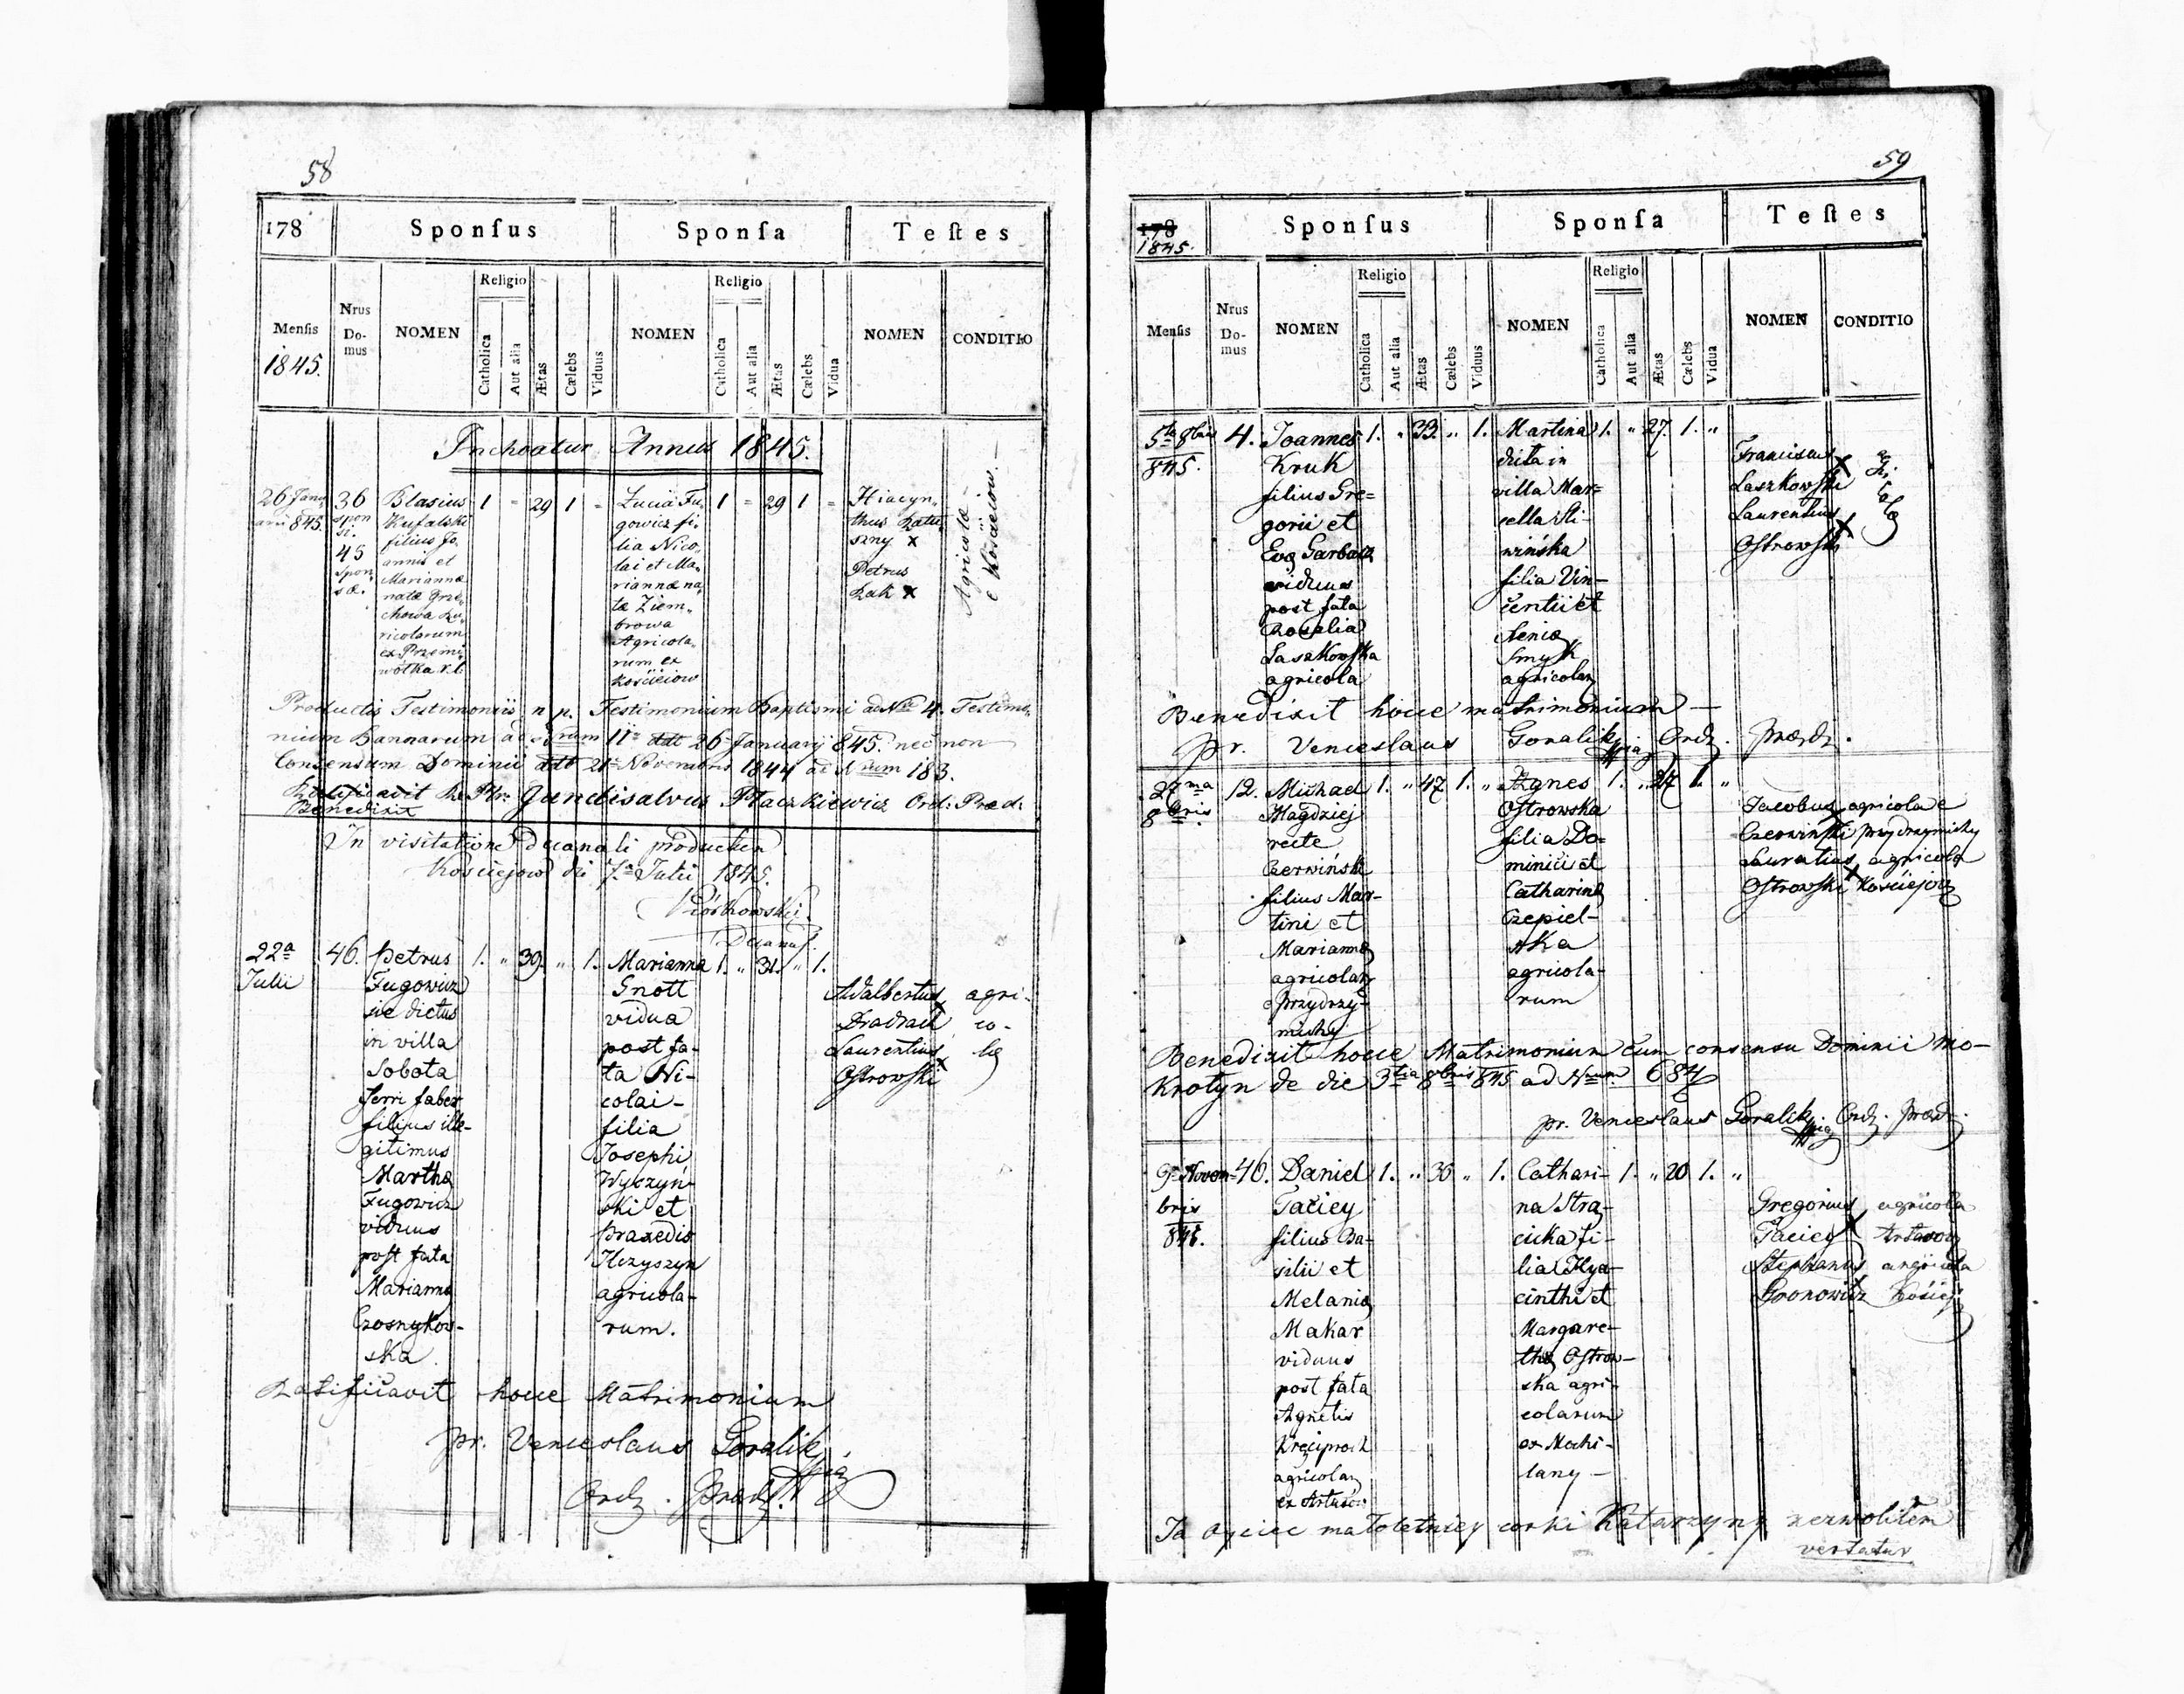 58
178 Sponſus Sponſa Teſtes
Menſis 1845. Nrus Domus NOMEN Religio Catholica Aut alia Ætas Cælebs Viduus NOMEN Religio Catholica Aut alia Ætas Cælebs Vidua NOMEN CONDITIO
Inchoatur Annus 1845.
26 Janu
arii 845.
36
spon
si.
45
spon
sæ.
Blasius
Kufalski
filius Jo
annis et
Mariannæ
natæ Grze
chowa
ricolarum
ex Przemi
wółka r.l.
1 " 29 1 "
Lucia Fu
gowicz fi
lia Nico
lai et Ma
riannæ na
tæ Ziem
browa
Agricola
rum ex
Kościeiow
1 " 29 1 "
Hiacyn
thus
x
Petrus
Żak x
Agricolæ
e Kościeiow
Productis Testimoniis n. p. Testimonium Baptismi ad Nr 4. Testimo
nium Bannarum ad 26 Januarij 845. nec non
Consensum Dominii 21 Novembris 1844 ad Nrum 183.
Ratificavit
Benedixit Gundisalvus Ptaczkiewicz Ord: Præd:
In visitatione decanali productum
Kościejow die 7. Julii 1845.
Piotrowski
Decanus.
22a
Julii
46.
Petrus
Fugowicz
sic dictus
in villa
Sobota
ferri faber
filius ille-
gitimus
Martha
Fugowicz
viduus
post fata
Marianna
Czosnykow-
ska
1. " 39. " 1.
Marianna
Gnott
vidua
post fa-
ta Ni-
colai-
filia
Josephi
Wyszyń-
ski et
Praxedis
Hryszyn
agricola-
rum.
1. " 31. " 1.
Adalbertus
x
Laurentius
x
Ostrowski
agri-
co-
læ
Ratificavit hocce Matrimonium
pr. Venceslaus Goralik
Ord. Præd.
59
178 1845. Sponſus Sponſa Teſtes
Menſis Nrus Domus NOMEN Religio Catholica Aut alia Ætas Cælebs Viduus NOMEN Religio Catholica Aut alia Ætas Cælebs Vidua NOMEN CONDITIO
5ta 8bris
845.
4.
Joannes
Kruk
filius Gre-
gorii et
Eva Garbacz
viduus
post fata
Rosalia
Laszkowska
agricola
1. " 33. " 1.
Martina
dicta in
villa Mar-
cella Sli-
wińska
filia Vin-
centii et
Xenia
Smyk
agricolar
1. " 27. 1. "
Franciscus
x
Laszkowski
Laurentius
x
Ostrowski
Benedixit hocce matrimonium —
pr. Venceslaus Goralik Ord. Præd.
27ma
8bris
12.
Michael
Magdziej
recte
Czerwiński
filius Mar-
tini et
Marianna
agricolar
e Przydrzy-
michy
1. " 47. 1. "
Agnes
Ostrowska
filia Do-
minici et
Catharina
Czepiel-
ska
agricola-
rum
1. " 27 1. "
Jacobus agricola e
Czerwiński Przydrzymichy
Laurentius agricola
x
Ostrowski Kościejow
Benedixit hocce Matrimonium cum consensu Dominii Mo-
krotyn de die 3tia 8bris 845 ad Nrum 684
pr. Venceslaus Goralik Ord. Præd.
9. Novem-
bris
845.
46.
Daniel
Taciey
filius Ba-
silii et
Melania
Makar
viduus
post fata
Agnetis
agricolar
ex Artasów
1. " 36 " 1.
Cathari-
na Stra-
cicka fi-
lia Hya-
cinthi et
Margare-
tha Ostrow-
ska agri-
colarum
ex Mochi-
lany —
1. " 20 1. "
Gregorius agricola
Taciey x Artasow
Stephanus agricola
Gronowicz Kościej
Ja Oyciec małoletniey corki Katarzyny zezwoliłem
vertatur